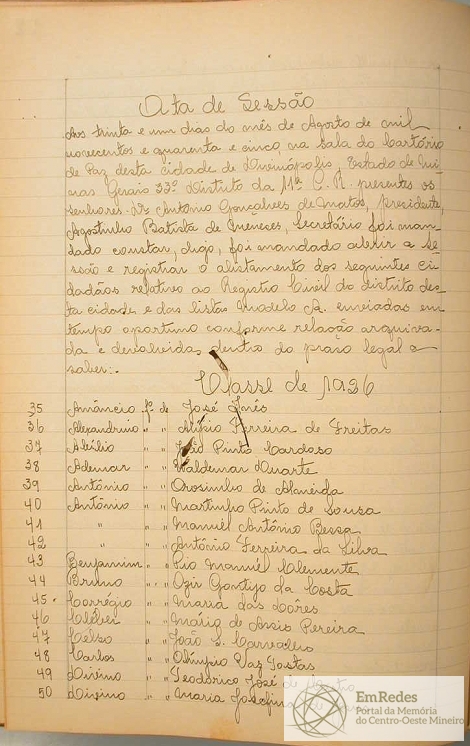 Ata de Sessão
Aos trinta e um dias do mês de Agosto de mil
novecentos e quarenta e cinco na sala do Cartório
de Paz desta cidade de Divinópolis, Estado de Mi-
nas Gerais 33º Distrito da 11ª C. R. presentes os
senhores: Dr. Antônio Gonçalves de Matos, presidente,
Agostinho Batista de Menezes, Secretário foi man-
dado constar, digo, foi mandado abrir a se-
ssão e registrar o alistamento dos seguintes ci-
dadãos relativo ao Registro Civil do distrito des-
ta cidade e das listas modelo A. enviadas em
tempo oportuno conforme relação arquiva-
da e devolvida dentro do prazo legal a
saber:-
Classe de 1926
35 Amâncio fº de José Inês
36 Alexandrino " " Alípio Ferreira de Freitas
37 Abílio " " João Pinto Cardoso
38 Ademar " " Waldemar Duarte
39 Antônio " " Orosimbo de Almeida
40 Antônio " " Martinho Pinto de Sousa
41 " " " Manuel Antônio Bessa
42 " " " Antônio Ferreira da Silva
43 Benjamim " " Pio Manuel Clemente
44 Bruno " " Ozir Gontijo da Costa
45 Corrégio " " Maria das Dôres
46 Cléber " " Mário de Assis Pereira
47 Celso " " João S. Carvalho
48 Carlos " " Olímpio Vaz
49 Divino " " Teodorico José de
50 Divino " " Maria Josefina de
EmRedes
Portal da Memória
do Centro-Oeste Mineiro